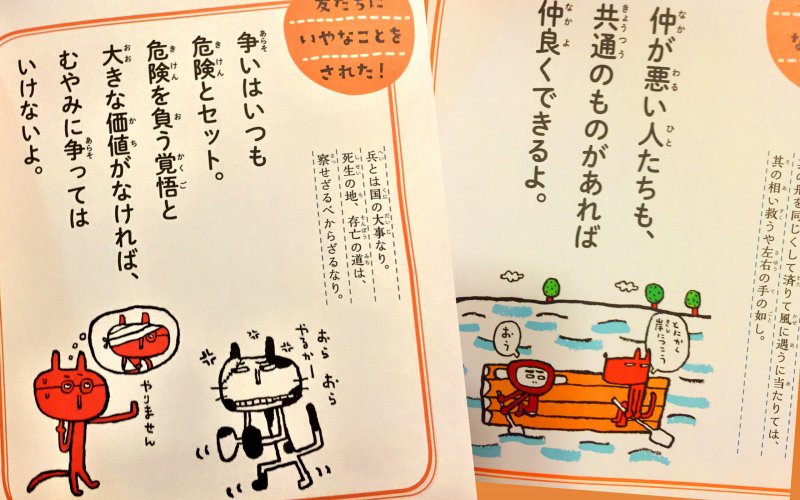 友だちに
いやなことを
された!
争いはいつも
危険とセット。
危険を負う覚悟と
大きな価値がなければ、
むやみに争っては
いけないよ。
兵とは国の大事なり。
死生の地、存亡の道は、
察せざるべからざるなり。
やりません
おら おら
やるかー
仲が悪い人たちも、
共通のものがあれば
仲良くできるよ。
舟を同じくして済りて風に遇うに当たりては、
其の相い救うや左右の手の如し。
おう
とにかく
岸につこう